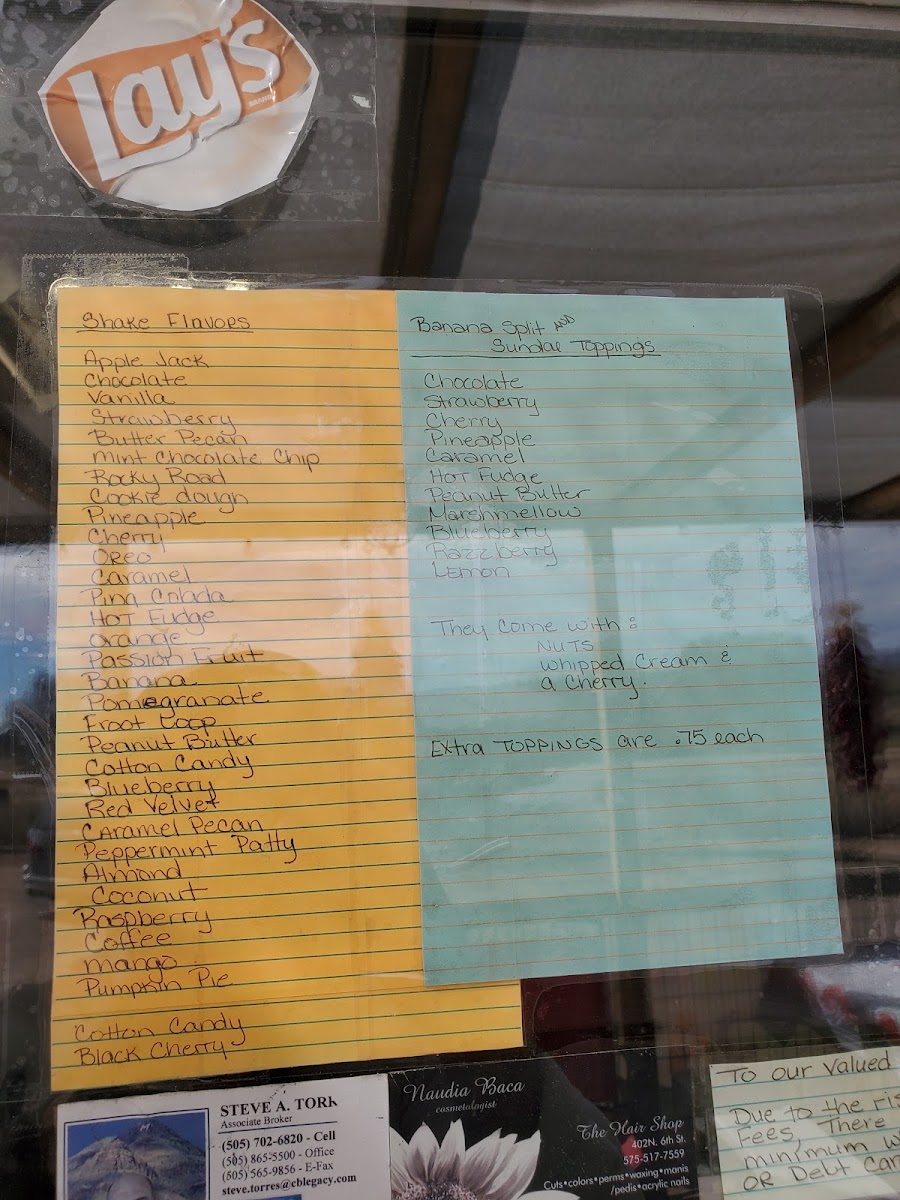 Lay's
BRAND
Shake Flavors
Apple Jack
Chocolate
Vanilla
Strawberry
Butter Pecan
Mint Chocolate Chip
Rocky Road
Cookie dough
Pineapple
Cherry
Oreo
Caramel
Pina Colada
HOT Fudge
Orange
Passion Fruit
Banana
Pomegranate
Froot Loop
Peanut Butter
Cotton Candy
Blueberry
Red Velvet
Caramel Pecan
Peppermint Patty
Almond
Coconut
Raspberry
Coffee
mango
Pumpkin Pie
Cotton Candy
Black Cherry
Banana Split AND
Sundae Toppings
Chocolate
Strawberry
Cherry
Pineapple
Caramel
HOT Fudge
Peanut Butter
Marshmellow
Blueberry
Razzberry
Lemon
They come with:
NUTS
whipped cream &
a Cherry.
Extra TOPPINGS are .75 each
STEVE A. TORR
Associate Broker
(505) 702-6820 - Cell
(505) 865-5500 - Office
(505) 565-9856 - E-Fax
steve.torres@cblegacy.com
Naudia Baca
cosmetologist
The Hair Shop
402N. 6th St.
575-517-7559
Cuts•colors•perms•waxing•manis
/pedis•acrylic nails
TO our Valued
Due to the ris
Fees, There
minimum w
OR Debt Car